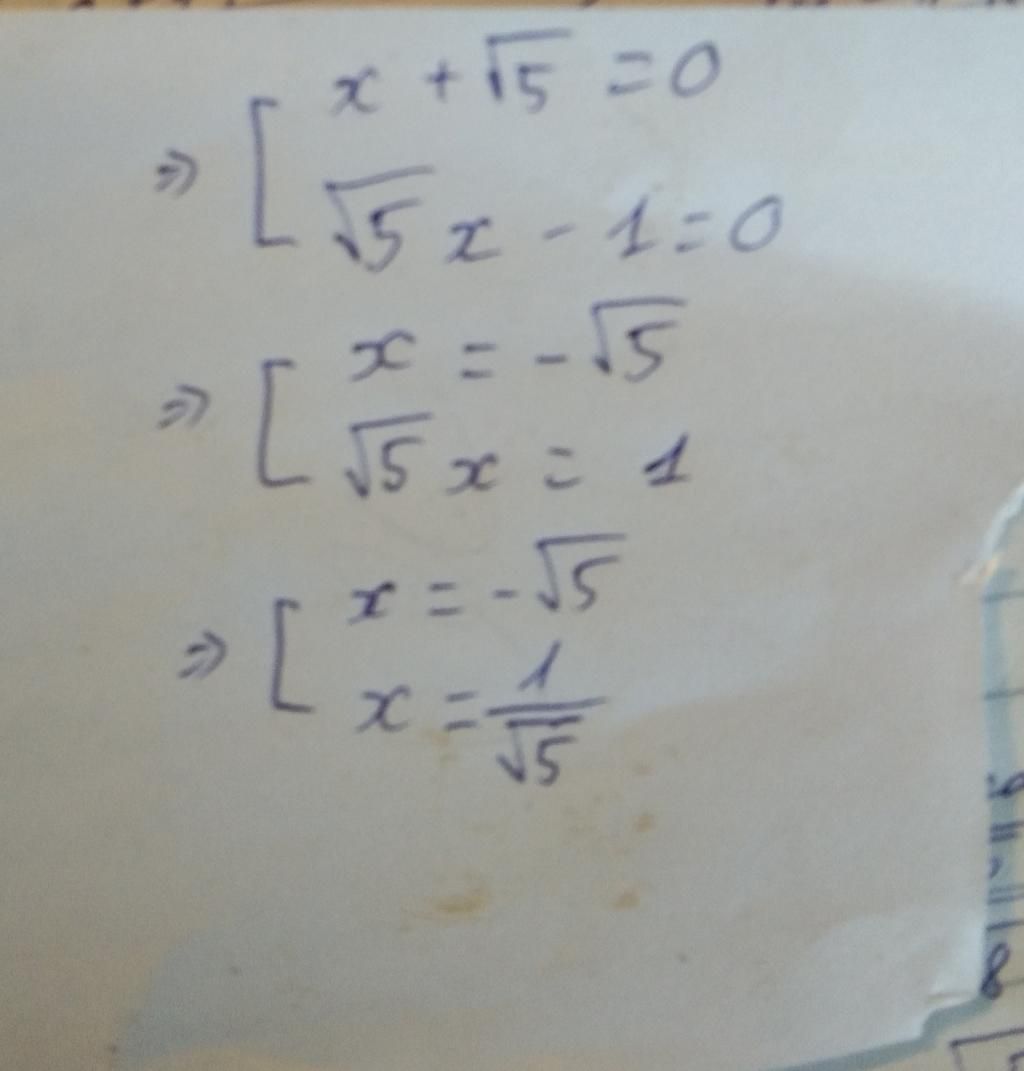 x + √5 = 0
⇒ [
√5 x - 1 = 0
x = - √5
⇒ [
√5 x = 1
x = - √5
⇒ [
x = 1/√5